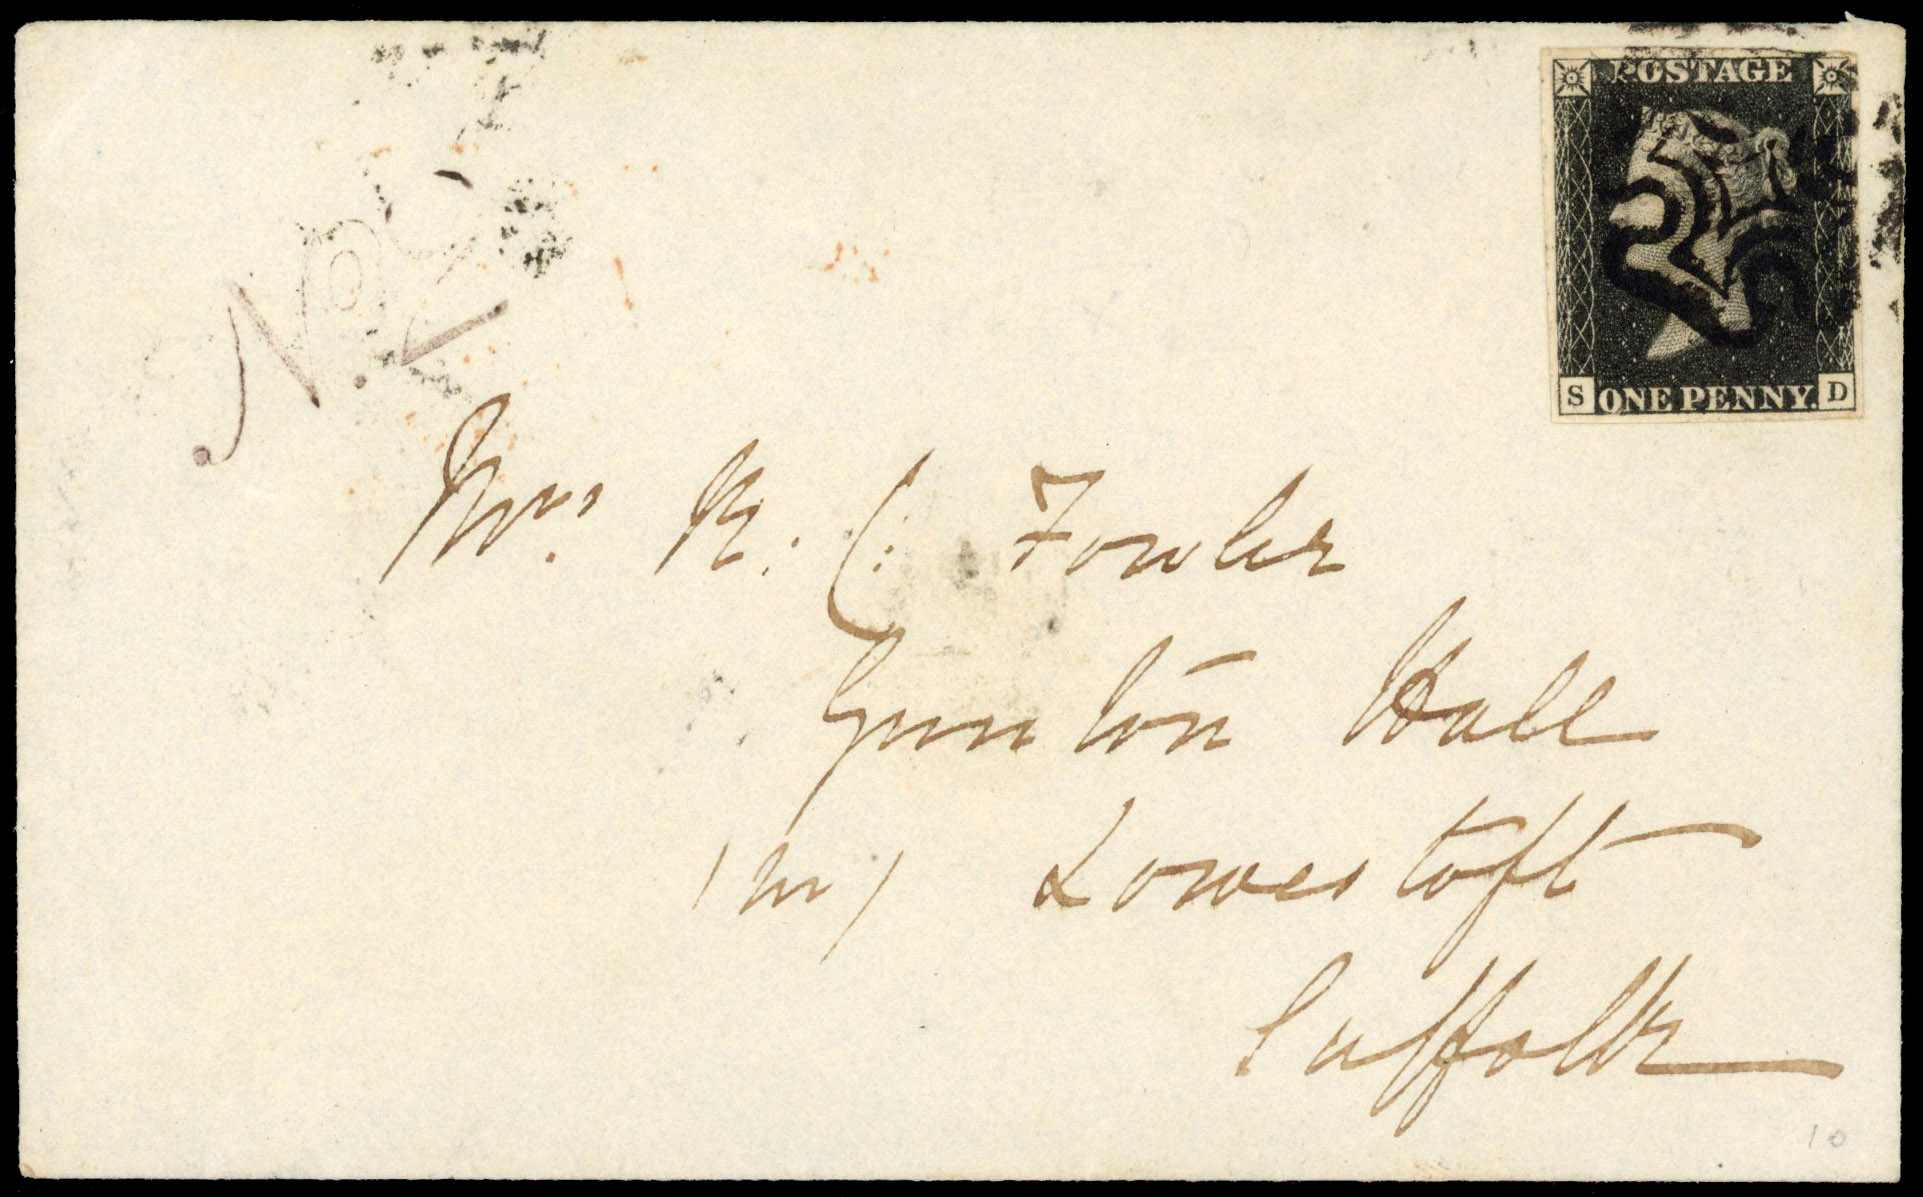 POSTAGE
S ONE PENNY. D
No. 2
Mrs. R. C. Fowler
Gunton Hall
Lowestoft
Suffolk
10